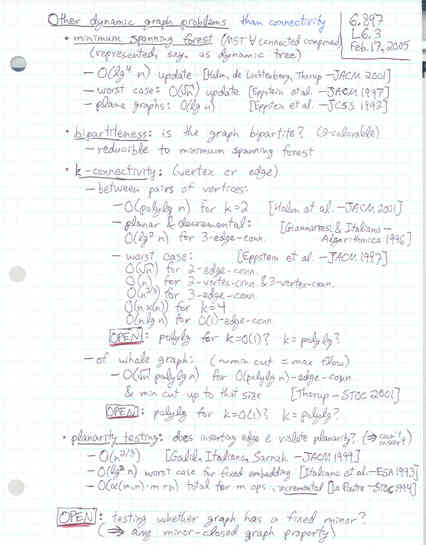 Other dynamic graph problems than connectivity
6.897
L6.3
Feb. 17, 2005
• minimum spanning forest (MST ∀ connected component)
(represented, say, as dynamic tree)
– O(lg⁴ n) update [Holm, de Lichtenberg, Thorup – JACM 2001]
– worst case: O(√n) update [Eppstein et al. – JACM 1997]
– plane graphs: O(lg n) [Eppstein et al. – JCSS 1992]
• bipartiteness: is the graph bipartite? (2-colorable)
– reducible to minimum spanning forest
• k-connectivity: (vertex or edge)
– between pairs of vertices:
– O(polylg n) for k=2 [Holm et al. – JACM 2001]
– planar & decremental: [Giammarresi & Italiano –
O(lg² n) for 3-edge-conn. Algorithmica 1996]
– worst case: [Eppstein et al. – JACM 1997]
O(√n) for 2-edge-conn.
O(n) for 2-vertex-conn. & 3-vertex-conn.
O(n^2/3) for 3-edge-conn.
O(n α(n)) for k=4
O(n lg n) for O(1)-edge-conn
OPEN: polylg for k=O(1)? k=polylg?
– of whole graph: (~min cut = max flow)
– O(√n polylg n) for O(polylg n)-edge-conn
& min cut up to that size [Thorup – STOC 2001]
OPEN: polylg for k=O(1)? k=polylg?
• planarity testing: does inserting edge e violate planarity? (⇒ can't insert)
– O(n^2/3) [Galil, Italiano, Sarnak – JACM 1999]
– O(lg² n) worst case for fixed embedding [Italiano et al. – ESA 1993]
– O(α(m,n)·m+n) total for m ops., incremental [La Poutré – STOC 1994]
OPEN: testing whether graph has a fixed minor?
(⇒ any minor-closed graph property)